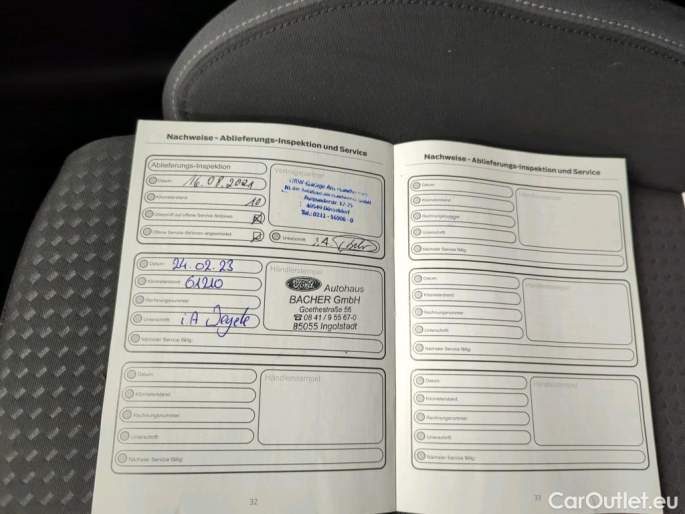 Nachweise - Ablieferungs-Inspektion und Service
Ablieferungs-Inspektion
Datum 16.08.2021
Kilometerstand 10
Überprüft auf offene Service-Aktionen
Offene Service-Aktionen angewendet
Vertragspartner
40549 Düsseldorf
Unterschrift i.A.
Datum 24.02.23
Kilometerstand 61210
Rechnungsnummer
Unterschrift i.A
Nächster Service fällig:
Händlerstempel
Ford Autohaus
BACHER GmbH
Goethestraße 56
☎ 08 41 / 9 55 67-0
85055 Ingolstadt
Datum
Kilometerstand
Rechnungsnummer
Unterschrift
Nächster Service fällig:
Händlerstempel
32
Nachweise - Ablieferungs-Inspektion und Service
Datum
Kilometerstand
Rechnungsnummer
Unterschrift
Nächster Service fällig:
Händlerstempel
Datum
Kilometerstand
Rechnungsnummer
Unterschrift
Nächster Service fällig:
Händlerstempel
Datum
Kilometerstand
Rechnungsnummer
Unterschrift
Nächster Service fällig:
Händlerstempel
33
CarOutlet.eu